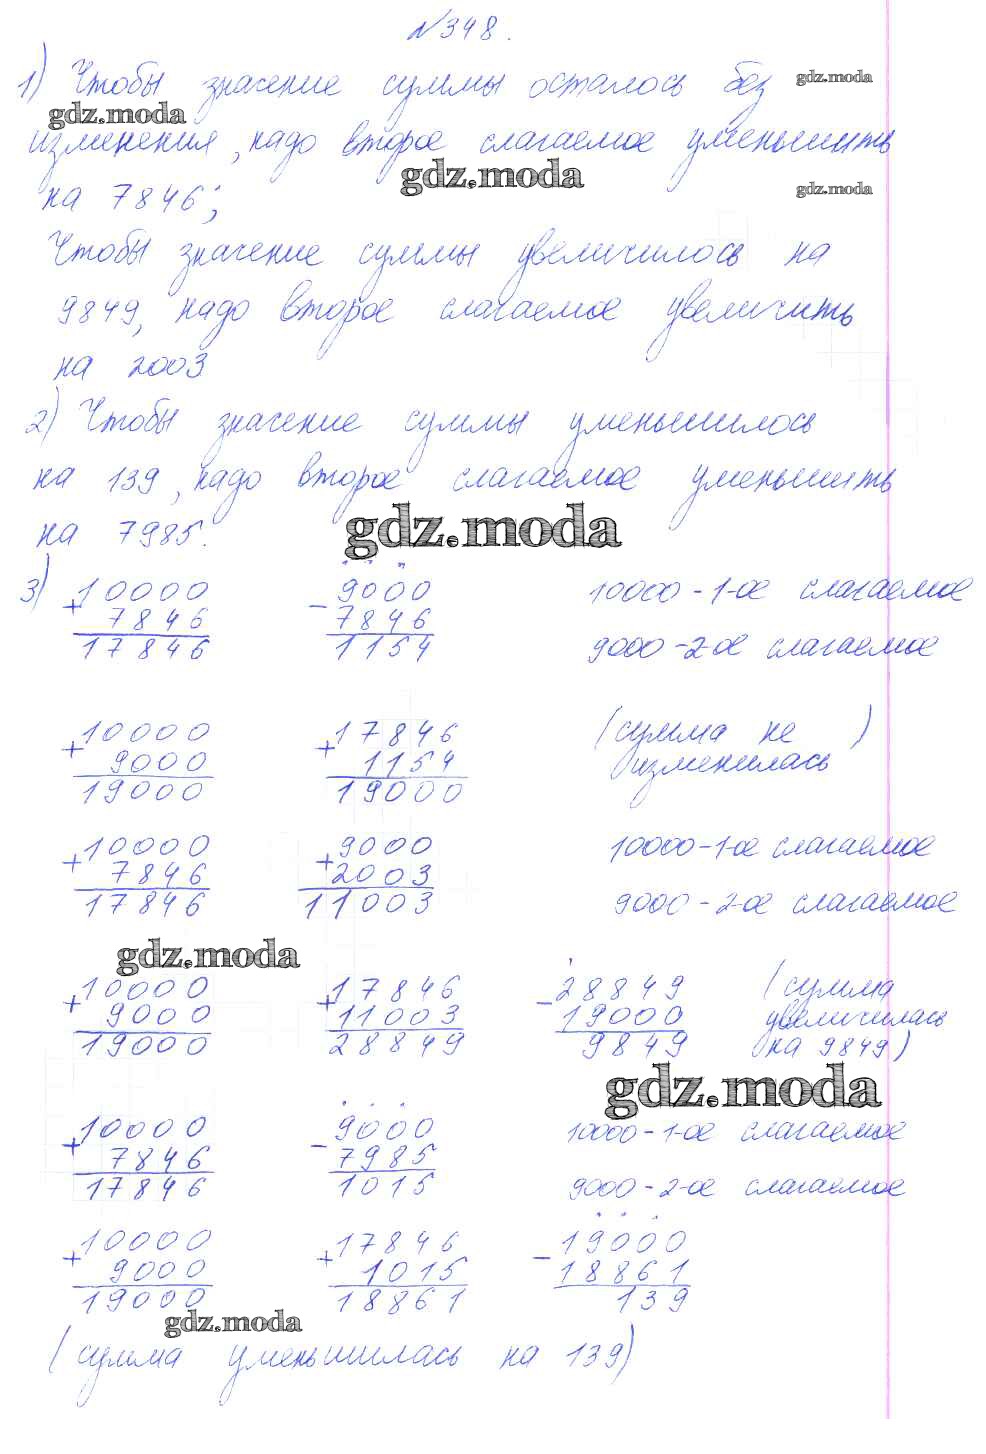 №348.
1) Чтобы значение суммы осталось без
gdz.moda
gdz.moda
изменения, надо второе слагаемое уменьшить
gdz.moda
gdz.moda
на 7846;
Чтобы значение суммы увеличилось на
9849, надо второе слагаемое увеличить
на 2003
2) Чтобы значение суммы уменьшилось
на 139, надо второе слагаемое уменьшить
на 7985.
gdz.moda
3) 10000 9000 10000 - 1-ое слагаемое
+ 7846 - 7846
17846 1154 9000 - 2-ое слагаемое
10000 17846 (сумма не )
+ 9000 + 1154 изменилась
19000 19000
10000 9000 10000 - 1-ое слагаемое
+ 7846 + 2003
17846 11003 9000 - 2-ое слагаемое
gdz.moda
10000 17846 28849 (сумма
+ 9000 + 11003 - 19000 увеличилась
19000 28849 9849 на 9849)
gdz.moda
10000 9000 10000 - 1-ое слагаемое
+ 7846 - 7985
17846 1015 9000 - 2-ое слагаемое
10000 17846 19000
+ 9000 + 1015 - 18861
19000 18861 139
gdz.moda
(сумма уменьшилась на 139)